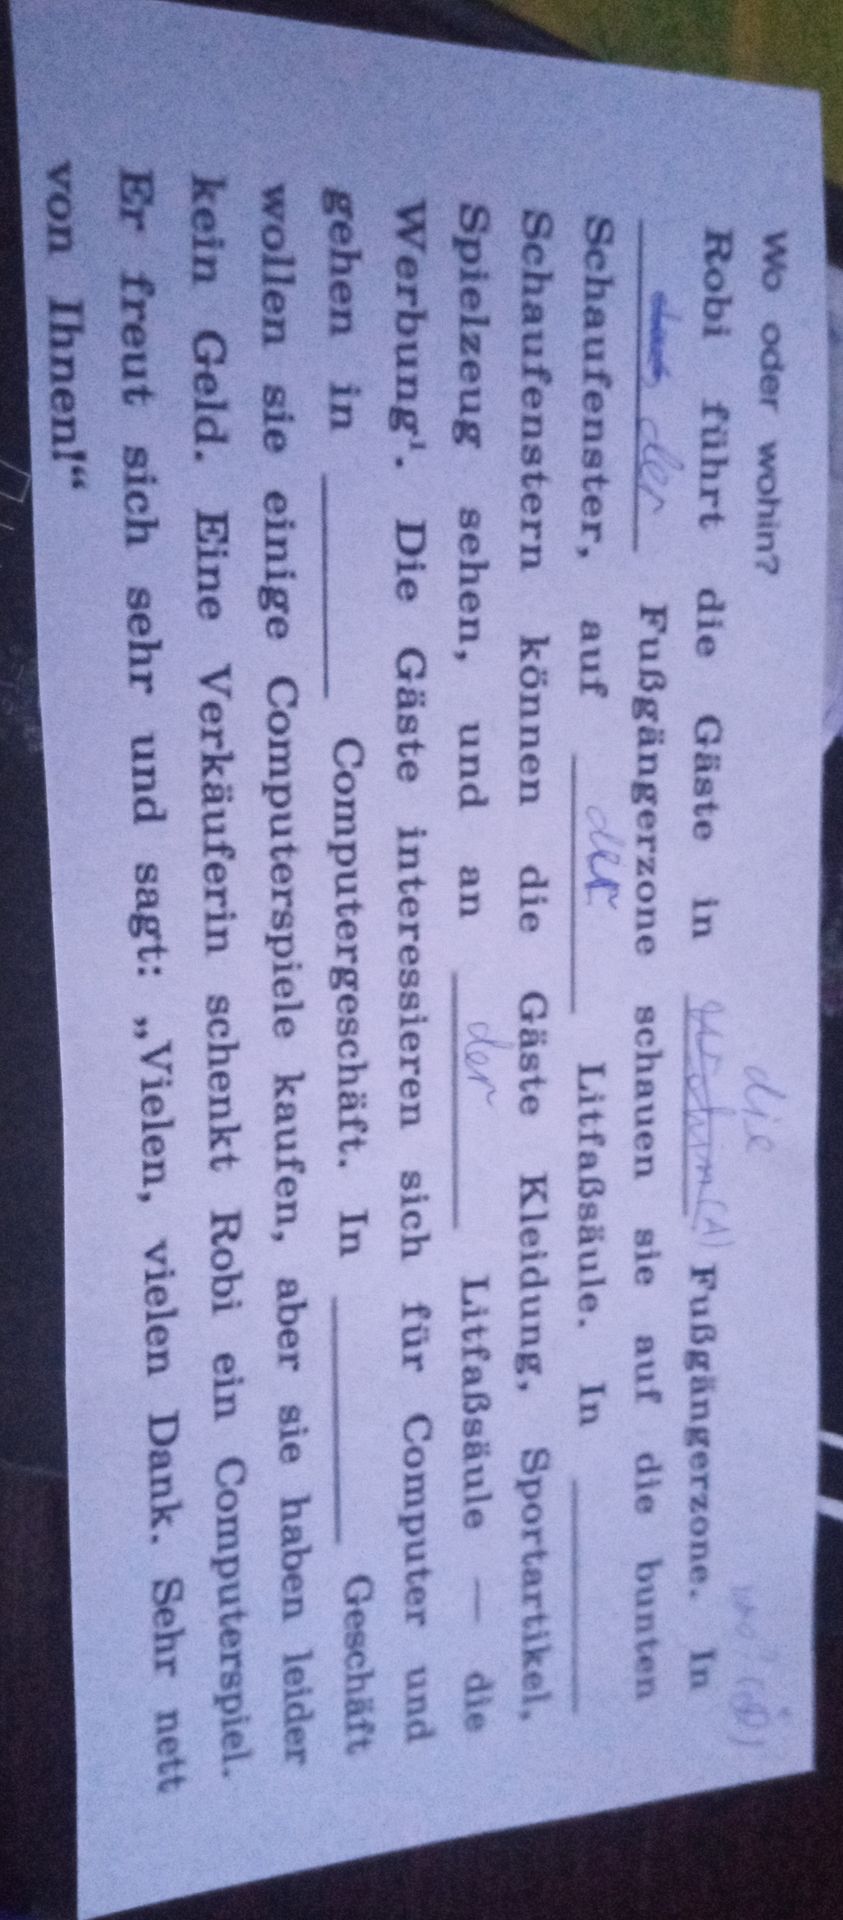 Wo oder wohin?
die wo? (D)
Robi führt die Gäste in wohin (A) Fußgängerzone. In
der Fußgängerzone schauen sie auf die bunten
Schaufenster, auf der Litfaßsäule. In ________
Schaufenstern können die Gäste Kleidung, Sportartikel,
Spielzeug sehen, und an der Litfaßsäule — die
Werbung¹. Die Gäste interessieren sich für Computer und
gehen in ________ Computergeschäft. In ________ Geschäft
wollen sie einige Computerspiele kaufen, aber sie haben leider
kein Geld. Eine Verkäuferin schenkt Robi ein Computerspiel.
Er freut sich sehr und sagt: „Vielen, vielen Dank. Sehr nett
von Ihnen!“